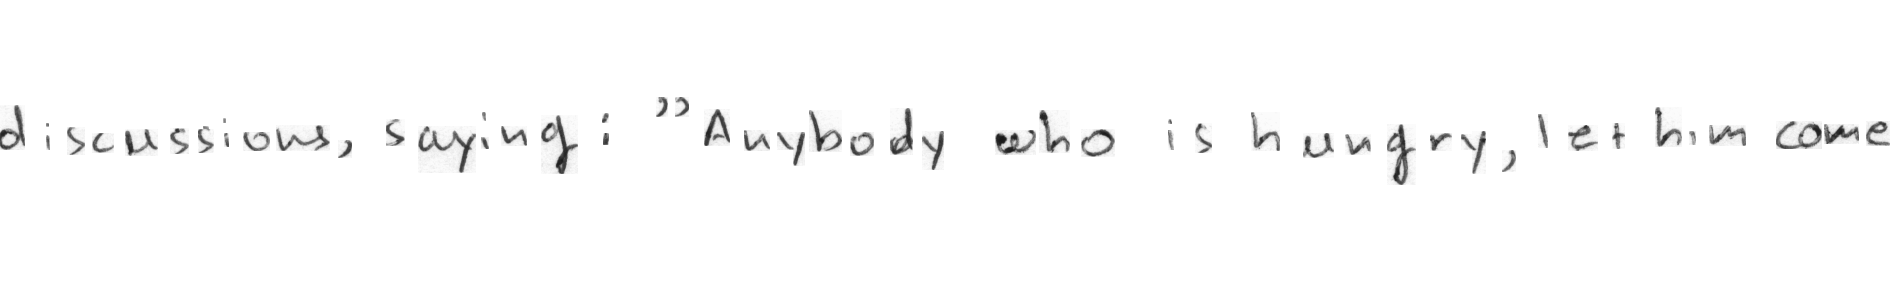 discussions, saying: "Anybody who is hungry, let him come